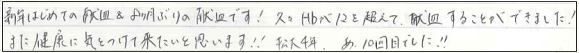 新年はじめての献血&8か月ぶりの献血です! 久々Hbが12を超えて、献血することができました!
また健康に気をつけて来たいと思います!! 松大4年. あ、10回目でした!!